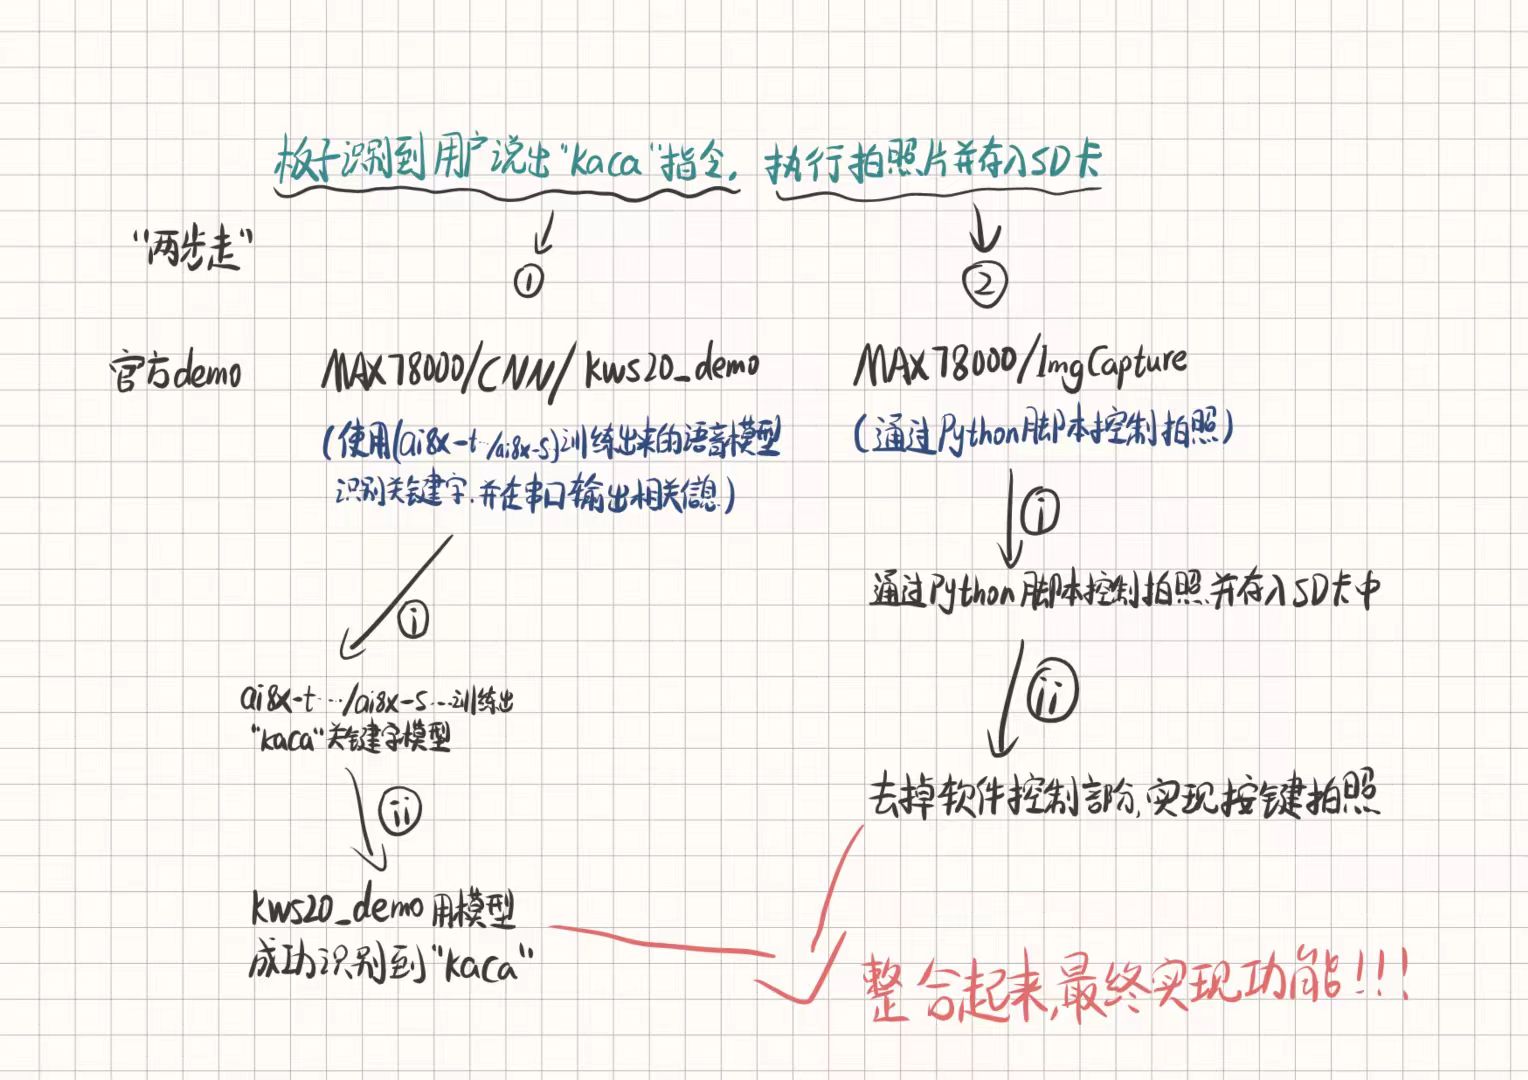 板子识别到用户说出"kaca"指令，执行拍照片并存入SD卡
"两步走"
① ②
官方demo MAX78000/CNN/kws20_demo MAX78000/ImgCapture
(使用(ai8x-t…/ai8x-s)训练出来的语音模型 (通过Python脚本控制拍照)
识别关键字,并在串口输出相关信息)
ⅰ
通过Python脚本控制拍照并存入SD卡中
ⅰ
ai8x-t…/ai8x-s…训练出
"kaca"关键字模型
ⅱ
去掉软件控制部份,实现按键拍照
ⅱ
kws20_demo用模型
成功识别到"kaca"
整合起来,最终实现功能!!!